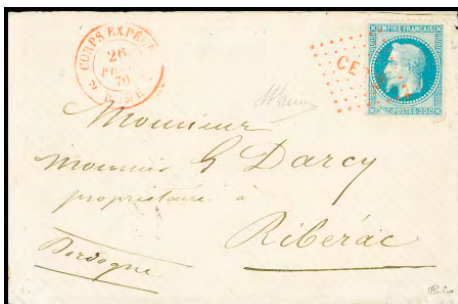 CORPS EXPÉD
26
70
CE
EMPIRE FRANÇAIS
POSTES 20 C
Monsieur
G Darcy
propriétaire à
Riberac
Dordogne